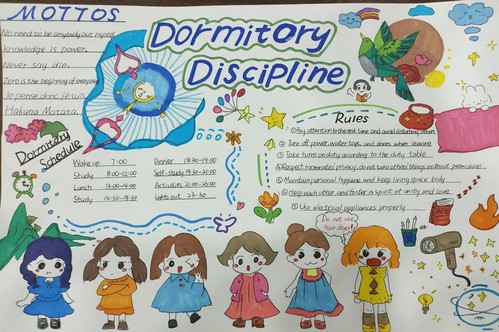 MOTTOS
No need to be anybody but myself.
knowledge is power.
Never say die.
Zero is the beginning of everything
Je pense donc je suis.
Hakuna Matata.
Dormitory
Discipline
Dormitory
Schedule
Wake up 7:00
Study 8:00-12:00
Lunch 12:00-14:00
Study 14:30-18:30
Dinner 18:30-19:00
Self-study 19:30-21:00
Activities 21:00-23:00
Lights out 23:30
Rules
① Pay attention to the rest time and avoid disturbing others
② Turn off power, water taps, and doors when leaving
③ Take turns on duty according to the duty table
④ Respect roommates' privacy, do not take others' things without permission
⑤ Maintain personal hygiene and keep living space tidy
⑥ Help each other and foster a spirit of unity and love
⑦ Use electrical appliances properly
Do not use
hair dryer!